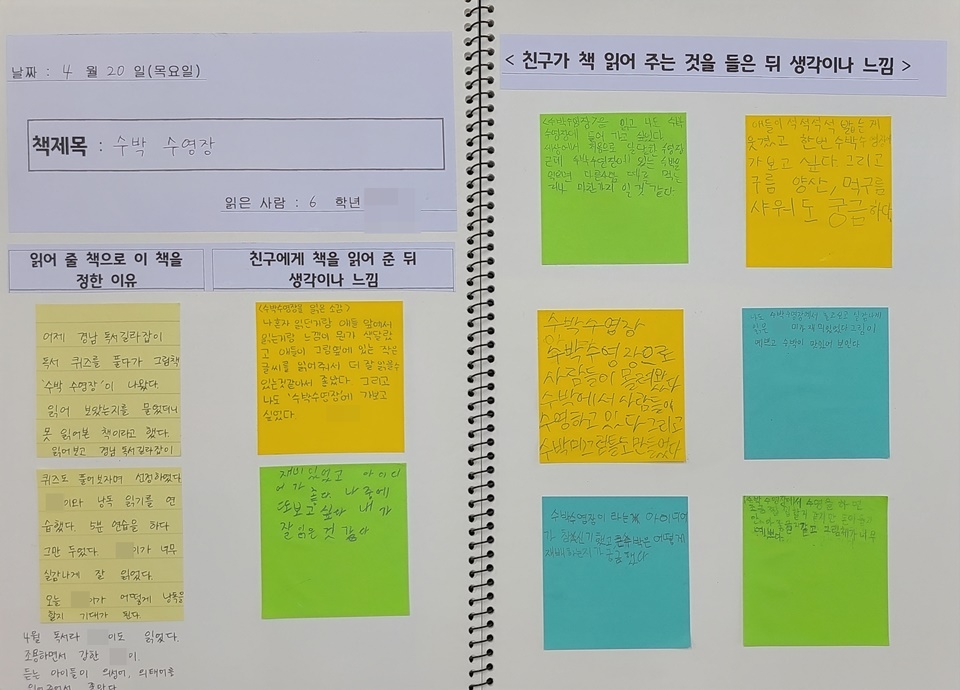 날짜 : 4 월 20 일(목요일)
책제목 : 수박 수영장
읽은 사람 : 6 학년
읽어 줄 책으로 이 책을
정한 이유
어제 경남 독서길라잡이
독서 퀴즈를 풀다가 그림책
'수박 수영장'이 나왔다.
읽어 보았는지를 물었더니
못 읽어본 책이라고 했다.
읽어보고 경남 독서길라잡이
퀴즈도 풀어보자며 선정하였다.
이와 낭독 읽기를 연
습했다. 5분 연습을 하다
그만 두었다. 이가 너무
실감나게 잘 읽었다.
오늘 이가 어떻게 낭독을
할지 기대가 된다.
4월 독서라 이도 읽었다.
조용하면서 강한 이.
듣는 아이들이 의성어, 의태어를
읽어주어서 좋았다.
친구에게 책을 읽어 준 뒤
생각이나 느낌
(수박수영장을 읽은 소감)
나혼자 읽던거랑 애들 앞에서
읽는거랑 느낌이 뭔가 색달랐
고 애들이 그림옆에 있는 작은
글씨를 읽어줘서 더 잘 읽을수
있는것같아서 좋았다. 그리고
나도 '수박수영장'에 가보고
싶었다
재미있었고 아이디
어가 좋다. 나중에
또보고 싶다 내가
잘 읽은 것 같다
< 친구가 책 읽어 주는 것을 들은 뒤 생각이나 느낌 >
<수박수영장>을 읽고 나도 수박
수영장에 들어 가고 싶었다
세상에서 처음으로 달달한 수영장
근데 수박수영장이 있는 수박을
먹으면 다른사람 때를 먹는
거나 마찬가지 일 것 같다
애들이 석석석석 밟는게
웃겼고 한번 수박수영장에
가보고 싶다 그리고
구름 양산, 먹구름
샤워도 궁금하다
수박수영장
수박수영장으로
사람들이 몰려와다
수박에서 사람들이
수영하고 있다 그리고
수박미끄럼틀도 만들었다
나도 수박수영장에서 놀고싶고
매우 재밌었다 그림이
예쁘고 수박이 맛있어 보인다
수박수영장이 라는 아이디어
가 참신기했고 큰수박은 어떻게
재배하는지가 궁금했다
수박 수영장에서 수영을 하면